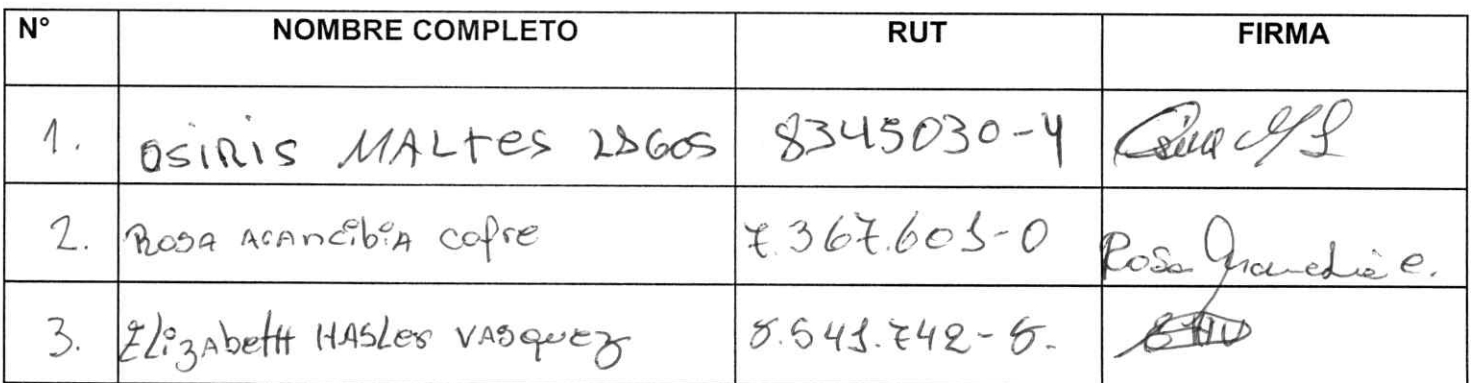 N° NOMBRE COMPLETO RUT FIRMA
1. OSIRIS MALtes LAGOS 8345030-4
2. ROSA ARANCibiA cofre 7.367.601-0 Rosa Arancibia C.
3. ElizAbetH HASLer VASquez 8.541.742-8.